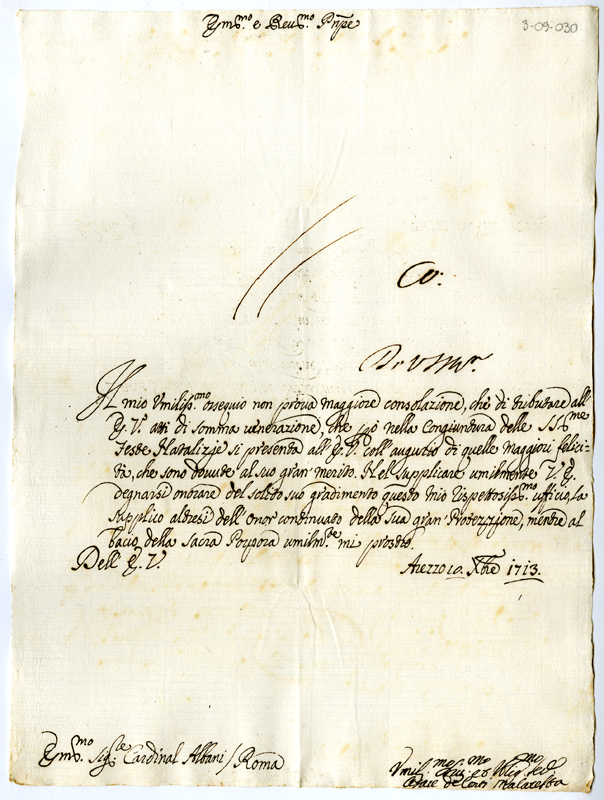 Em.mo e Reu.mo Pnpe
3-09-030
Co:
Il mio Vmiliss.mo ossequio non proua maggiore consolazione, che di tributare all'
E. V. atti di somma uenerazione, che nella Congiuntura delle SS.me
Feste Natalizie si presenta all'E. V. coll'augurio di quelle maggiori felici=
tà, che sono douute al suo gran' merito. Nel supplicare umilmente V. E.
degnarsi onorare del solito suo gradimento questo mio rispettosiss.mo ufficio, la
supplico altresi dell'onor continuato della sua gran' Protezzione, mentre al
bacio della Sacra Porpora umilm.te mi prostro.
Dell'E. V.
Arezzo 10. Xbre 1713.
Em.mo Sig.re Cardinal Albani / Roma
Vmil.mo